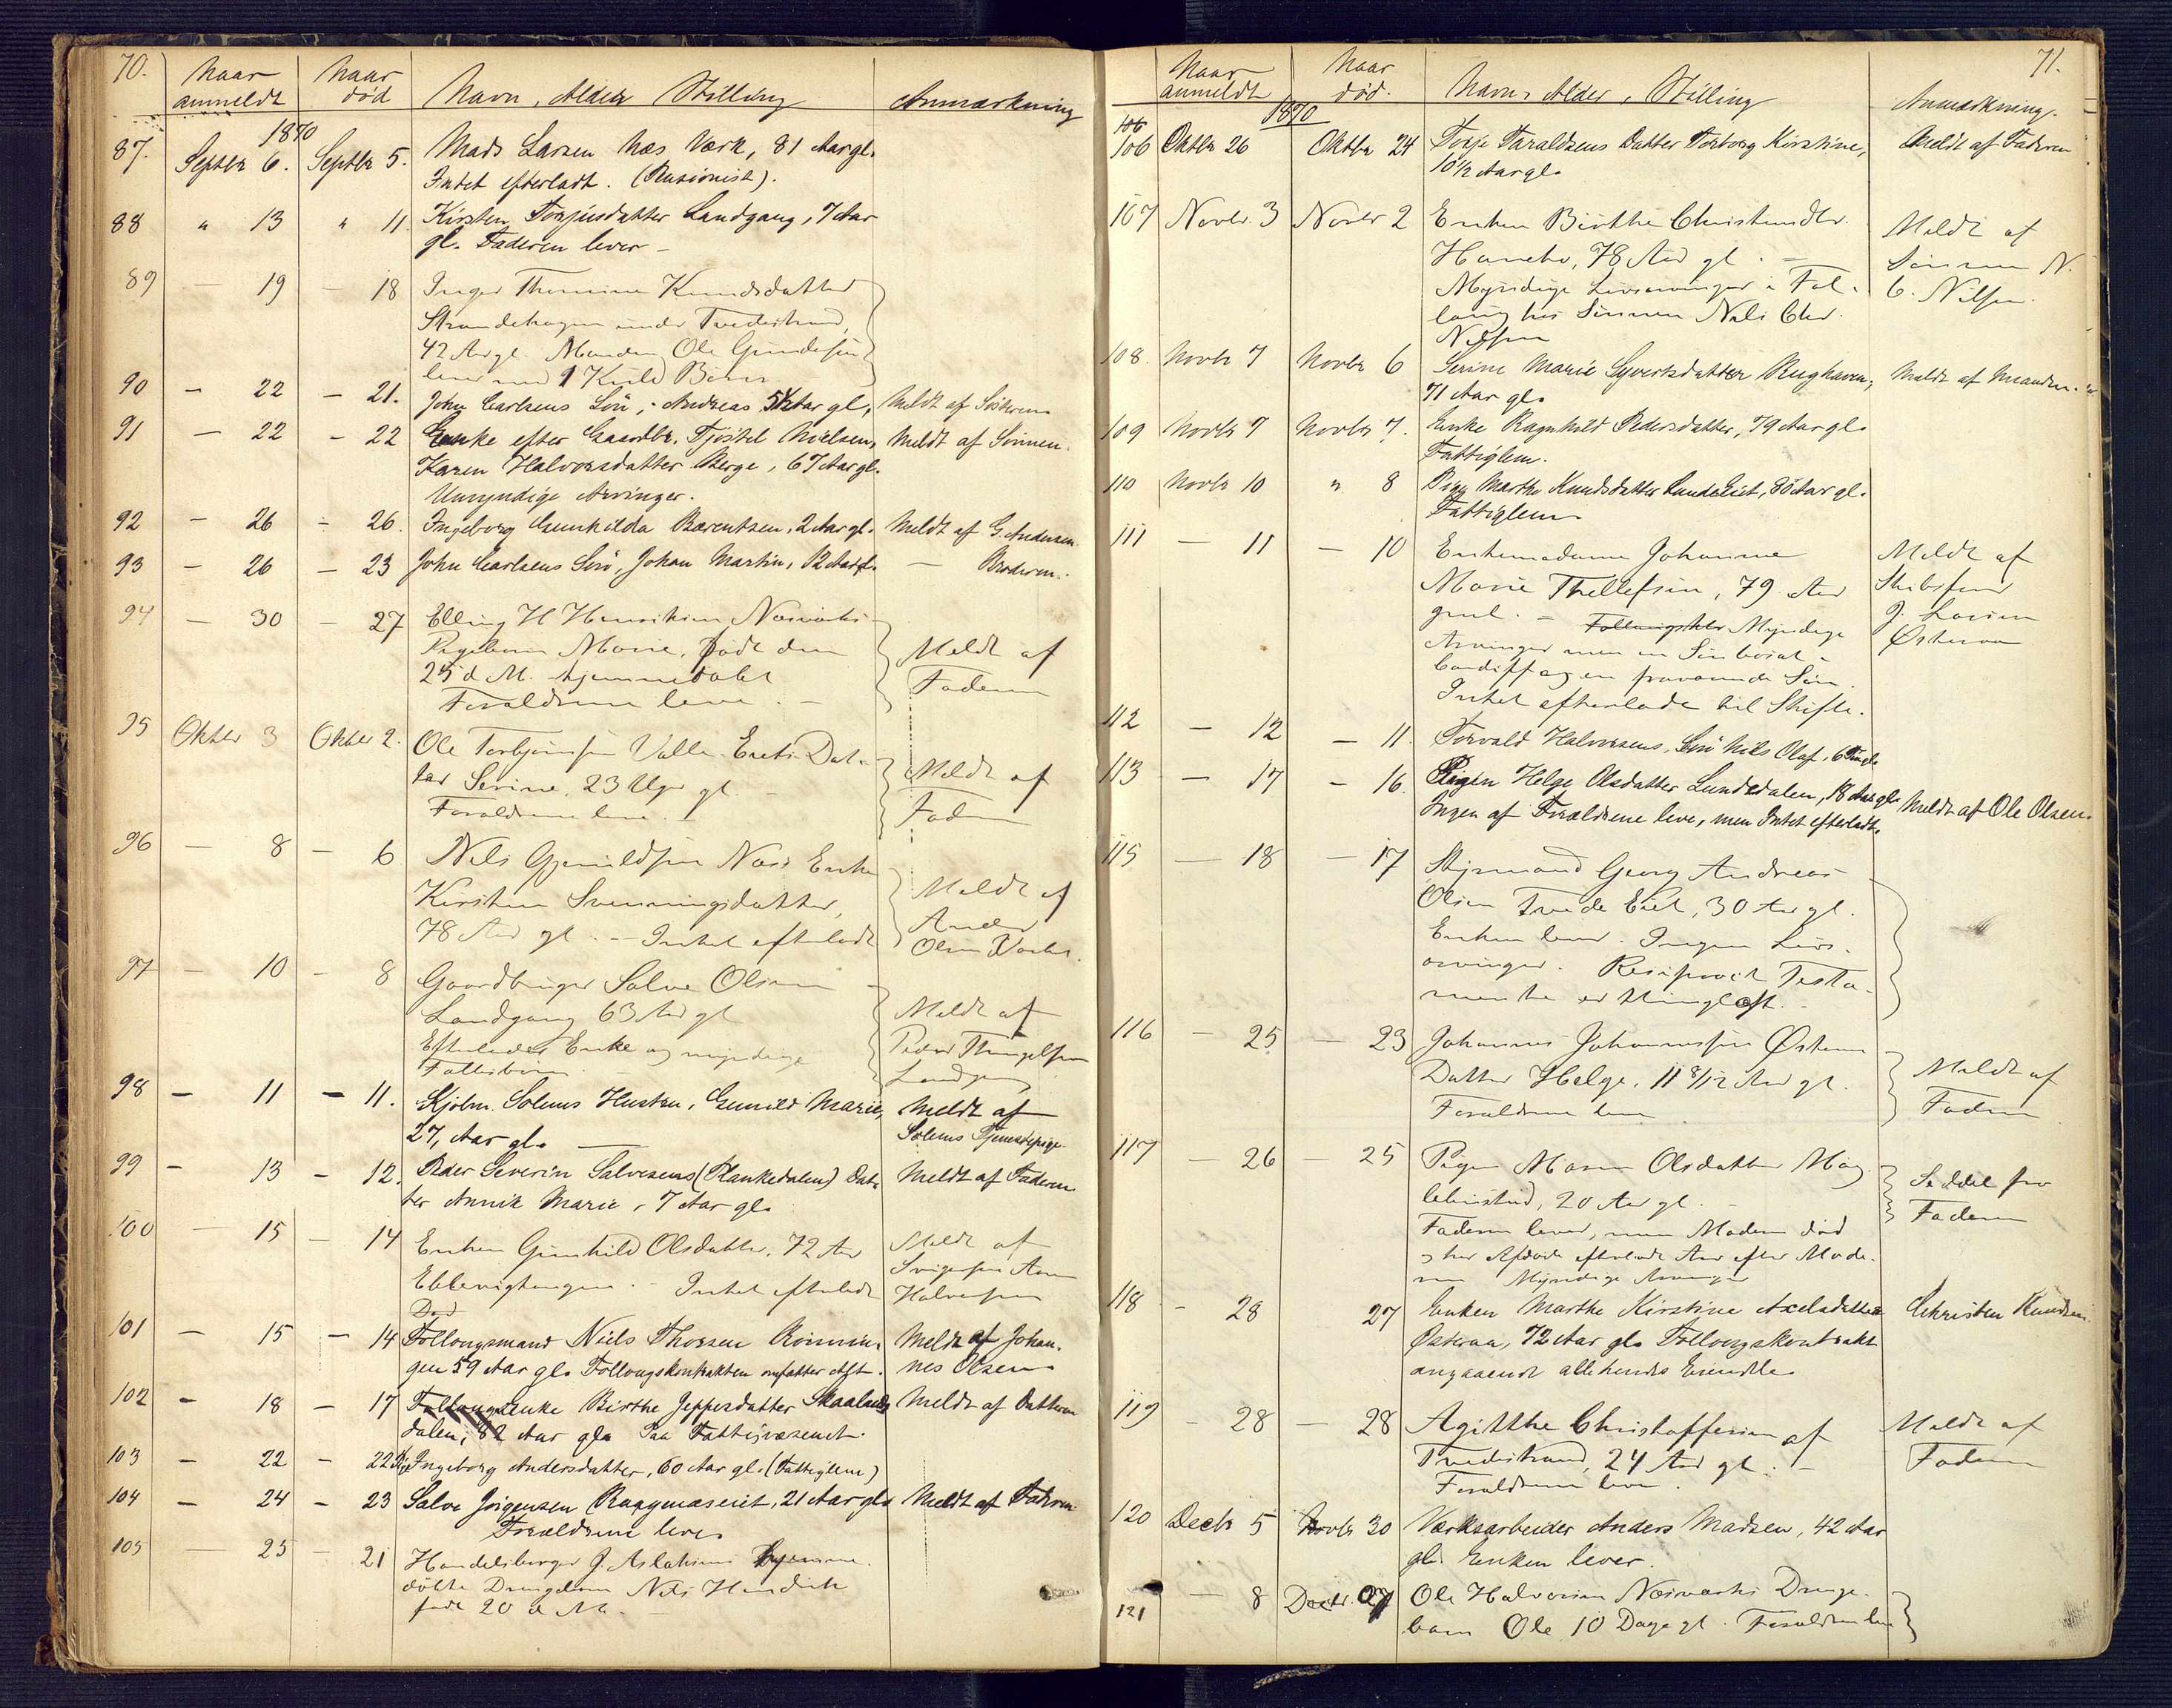 70.
Naar anmeldt
Naar død
Navn, Alder Stilling
Anmærkning
1870
87. Septbr 6. Septbr 5. Mads Larsen Næs Værk, 81 Aar gl.
Intet efterladt. (Pensionist).
88 " 13 " 11. Kirsten Torjusdatter Landgang, 7 Aar
gl. Faderen lever –
89 – 19 – 18 Inger Thomine Knudsdatter
Strandehagen under Tvedestrand,
42 Aar gl. Manden Ole Gundersen
lever med 1 Kuld Børn
90 – 22 – 21. John Carlsens Søn, Andreas 5½ Aar gl, Meldt af Søsteren
91 – 22 – 22 Enke efter Gaardbr. Tjøstel Nielsen, Meldt af Sønnen.
Karen Halvorsdatter Berge, 67 Aar gl.
Umyndige Arvinger.
92 – 26 – 26. Ingeborg Gunhilda Berentsen, 2 Aar gl. Meldt af G. Andersen
93 – 26 – 23 John Carlsens Søn, Johan Martin, 12 Aar gl. – Broderen.
94 – 30 – 27 Elling H Henriksen Næsværks
Pigebarn Marie, født den
25 d. M. hjemmedøbt
Forældrene leve. –
Meldt af
Faderen
95 Oktbr 3 Oktbr 2. Ole Torbjørnsen Valle Eiets Dat-
ter Serine, 23 Uger gl. –
Forældrene leve.
Meldt af
Faderen
96 – 8 – 6 Nils Gjermildsen Næs Enke
Kirsten Svenningsdatter,
78 Aar gl. – Intet efterladt
Meldt af
Anders
Olsen
97 – 10 – 8 Gaardbruger Salve Olsen
Landgang 63 Aar gl
Efterlader Enke og myndige
Fællesbørn.
Meldt af
Peder
Landgang
98 – 11 – 11. Kjøbm. Solems Hustru, Gunild Marie,
27, Aar gl.
Meldt af
Solems Tjenestepige
99 – 13 – 12. Peder Severin Salvesens (Plankedalen) Dat-
ter Annik Marie, 7 Aar gl.
Meldt af Faderen
100 – 15 – 14 Enken Gunhild Olsdatter, 72 Aar
Ebbevigtangen. – Intet efterladt
Meldt af
Svigersøn
Halvorsen
101 – 15 – 14 Follougsmand Niels Thorsen
gen 59 Aar gl. Follougskontrakten omfatter
Meldt af Johan-
nes Olsen
102 – 18 – 17 Follougsenke Birthe Jeppesdatter Skaalands
dalen, 82 Aar gl. Paa Fattigvæsenet.
Meldt af Datteren
103 – 22 – 22 Ingeborg Andersdatter, 60 Aar gl. (Fattiglem)
104 – 24 – 23 Salve Jørgensen 21 Aar gl. Meldt af Faderen
Forældrene leve
105 – 25 – 21 Handelsborger J. Aslaksens hjemme-
døbte Drengebarn Nils Hendrik
født 20 d. M. –
71.
Naar anmeldt
Naar død.
Navn, Alder, Stilling
Anmærkning.
1870
106
106 Oktbr 26 Oktbr 24 Torje Taraldsens Datter Torborg Kirstine,
10½ Aar gl.
Meldt af Faderen
107 Novbr. 3 Novbr 2 Enken Birthe Christensdtr.
78 Aar gl. –
Myndige Livsarvinger i Fol-
loug hos Sønnen Nils Chr.
Nilsen
Meldt af
Sønnen N.
C. Nilsen.
108. Novbr 7 Novbr 6 Serine Marie Syvertsdatter Rughaven,
71 Aar gl.
Meldt af Manden.
109 Novbr 7 Novbr 7. Enke Ragnhild Pedersdatter, 79 Aar gl.
Fattiglem.
110 Novbr 10 " 8 Pige Marthe Knudsdatter LundeEiet, 80 Aar gl.
Fattiglem
111 – 11 – 10 Enkemadame Johanne
Marie Thellefsen, 79 Aar
gml. – Follougsktr Myndige
Arvinger men en Søn bosat i
Cardiff og en fraværende Søn.
Intet efterladt til Skifte.
Meldt af
Skibsfører
J. Larsen
Østeraa
112 – 12 – 11. Torvald Halvorsens, Søn Nils Olaf,
113 – 17 – 16. Pigen Helge Olsdatter Lundedalen, 18 Aar gl.
Ingen af Forældrene leve, men Intet efterladt.
Meldt af Ole Olsen.
115 – 18 – 17 Styrmand Georg Andreas
Olsen Tvede Eiet, 30 Aar gl.
Enken lever. Ingen Livs-
arvinger. Resiprocit Testa-
mente er thinglæst. –
116 – 25 – 23 Johannes Johannesen Østeraa
Datter Helge, 11 8/12 Aar gl.
Forældrene leve
Meldt af
Faderen
117 – 26 – 25 Pigen Maren Olsdatter
20 Aar gl. –
Faderen lever, men Moderen død
og har Afdøde efterladt Arv efter Mode-
ren Myndige Arvinger
Seddel fra
Faderen
118 – 28 27 Enken Marthe Kirstine Axelsdatter
Østeraa, 72 Aar gl. Follougskontrakt
angaaende alle hendes Eiendele
Christen Knudsen
119 – 28 – 28 Agitthe Christoffersen af
Tvedestrand, 24 Aar gl. –
Forældrene leve.
Meldt af
Faderen
120 Decbr 5 Novbr 30 Værksarbeider Anders Madsen, 42 Aar
gl. Enken lever.
121 – 8 Decbr. 07 Ole Halvorsen Næsværks Drenge-
barn Ole 10 Dage gl. Forældrene leve